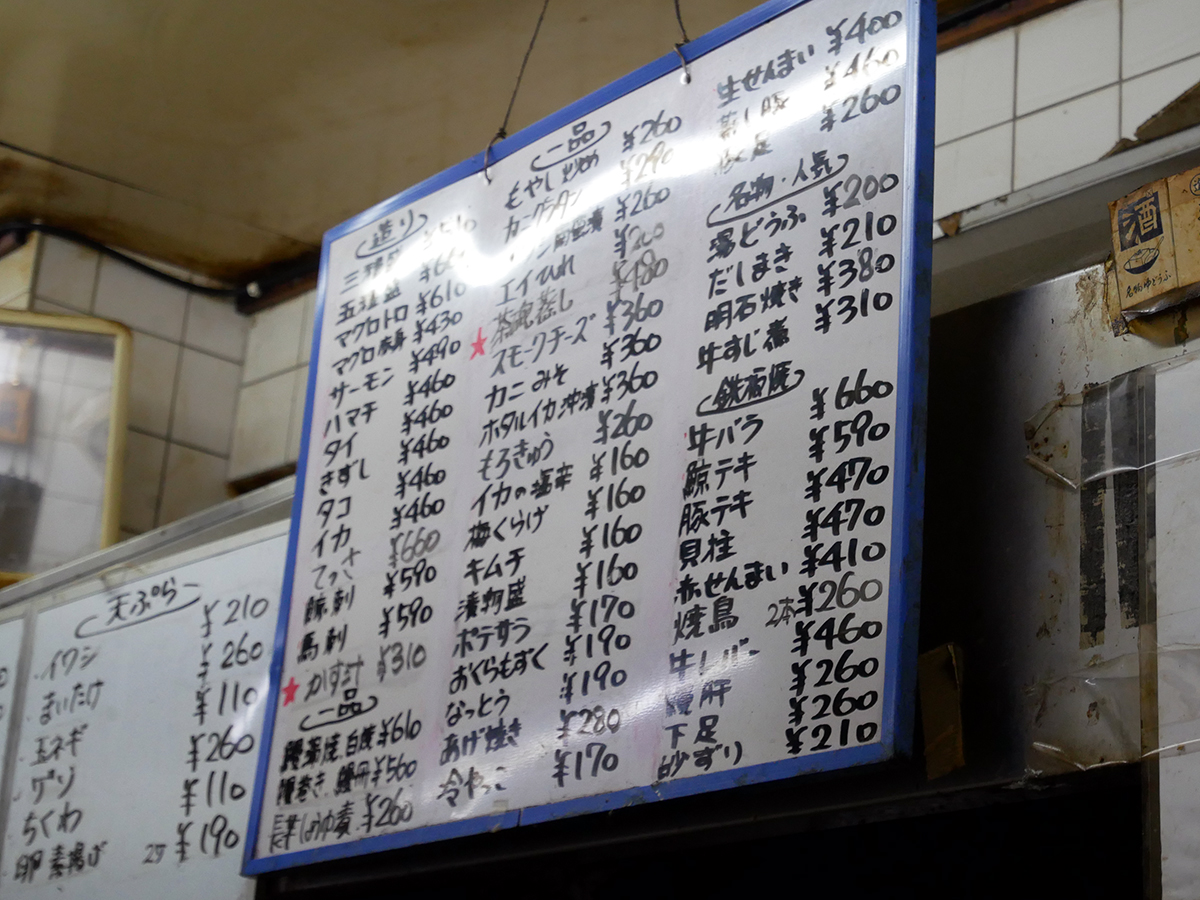 造り
三種盛 ¥510
五種盛
マグロトロ ¥610
マグロ赤身 ¥430
サーモン ¥490
ハマチ ¥460
タイ ¥460
きずし ¥460
タコ ¥460
イカ ¥460
てっさ ¥660
鯨刺 ¥590
馬刺 ¥590
★かす汁 ¥310
一品
鰻蒲焼、白焼 ¥610
¥560
¥260
一品
もやし炒め ¥260
カニグラタン ¥290
¥260
エイひれ
★茶碗蒸し ¥480
スモークチーズ ¥360
カニみそ ¥360
ホタルイカ沖漬 ¥360
もろきゅう ¥260
イカの塩辛 ¥160
梅くらげ ¥160
キムチ ¥160
漬物盛 ¥160
ポテサラ ¥170
おくらもずく ¥190
なっとう ¥190
あげ焼き ¥280
冷やっこ ¥170
生せんまい ¥400
蒸し豚 ¥460
豚足 ¥260
名物・人気
湯どうふ ¥200
だしまき ¥210
明石焼き ¥380
牛すじ煮 ¥310
鉄板焼
牛バラ ¥660
鯨テキ ¥590
豚テキ ¥470
貝柱 ¥470
赤せんまい ¥410
焼鳥 2本 ¥260
牛レバー ¥460
鰻肝 ¥260
下足 ¥260
砂ずり ¥210
天ぷら
イワシ ¥210
まいたけ ¥260
玉ネギ ¥110
ゲソ ¥260
ちくわ ¥110
卵素揚げ 2ヶ ¥190
酒
名物ゆどうふ